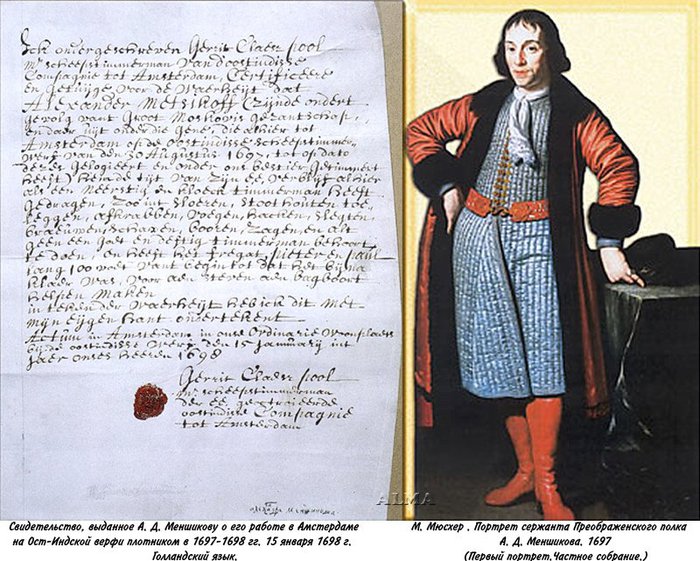 Ick ondergeschreven Gerrit Claesz pool
Mr scheepstimmerman vand oostindisse
Compagnie tot Amsterdam, Certificeere
en Getuijge, voor de Waerheijt dat
Alexander Metsikoff (Zijnde ondert
gevolg vant Groot Moskovis gezantschap,
en daer uijt onder die gene, die alhier tot
Amsterdam op de oostindisse scheepstimmer-
werf van den 30 Augustus 1697, tot op dato
dezes Gelogieert en onder ons bestier Getimmert
heeft) de tijt van Zijn verblijf alhier
als een Neerstig en kloeck timmerman heeft
Gedragen, Zoo int stoothouten toe
leggen, afkrabben, voegen, hacken, slegten,
braeuwen, schaven, booren, Zagen, en
geen een goet en deftig timmerman behoort
te doen, en heeft het fregat, pieter en paul
lang 100 voet vant begin tot dat het bijna
klaer was, voor aen steven aen bagboort
helpen maken
in teken der Waerheijt heb ick dit met
mijn eijgen hant onderteekent
Actum in Amsterdam in onse ordinarie Woonplaets
bij de oostindisse Werf den 15 Januarij int
Jaer onses heeren 1698
Gerrit Claesz pool
Mr scheepstimmerman
der Ed. geoctroijeerde
oostindisse Compagnie
tot Amsterdam
ALMA
Свидетельство, выданное А. Д. Меншикову о его работе в Амстердаме
на Ост-Индской верфи плотником в 1697-1698 гг. 15 января 1698 г.
Голландский язык.
М. Мюсхер . Портрет сержанта Преображенского полка
А. Д. Меншикова. 1697
(Первый портрет.Частное собрание.)